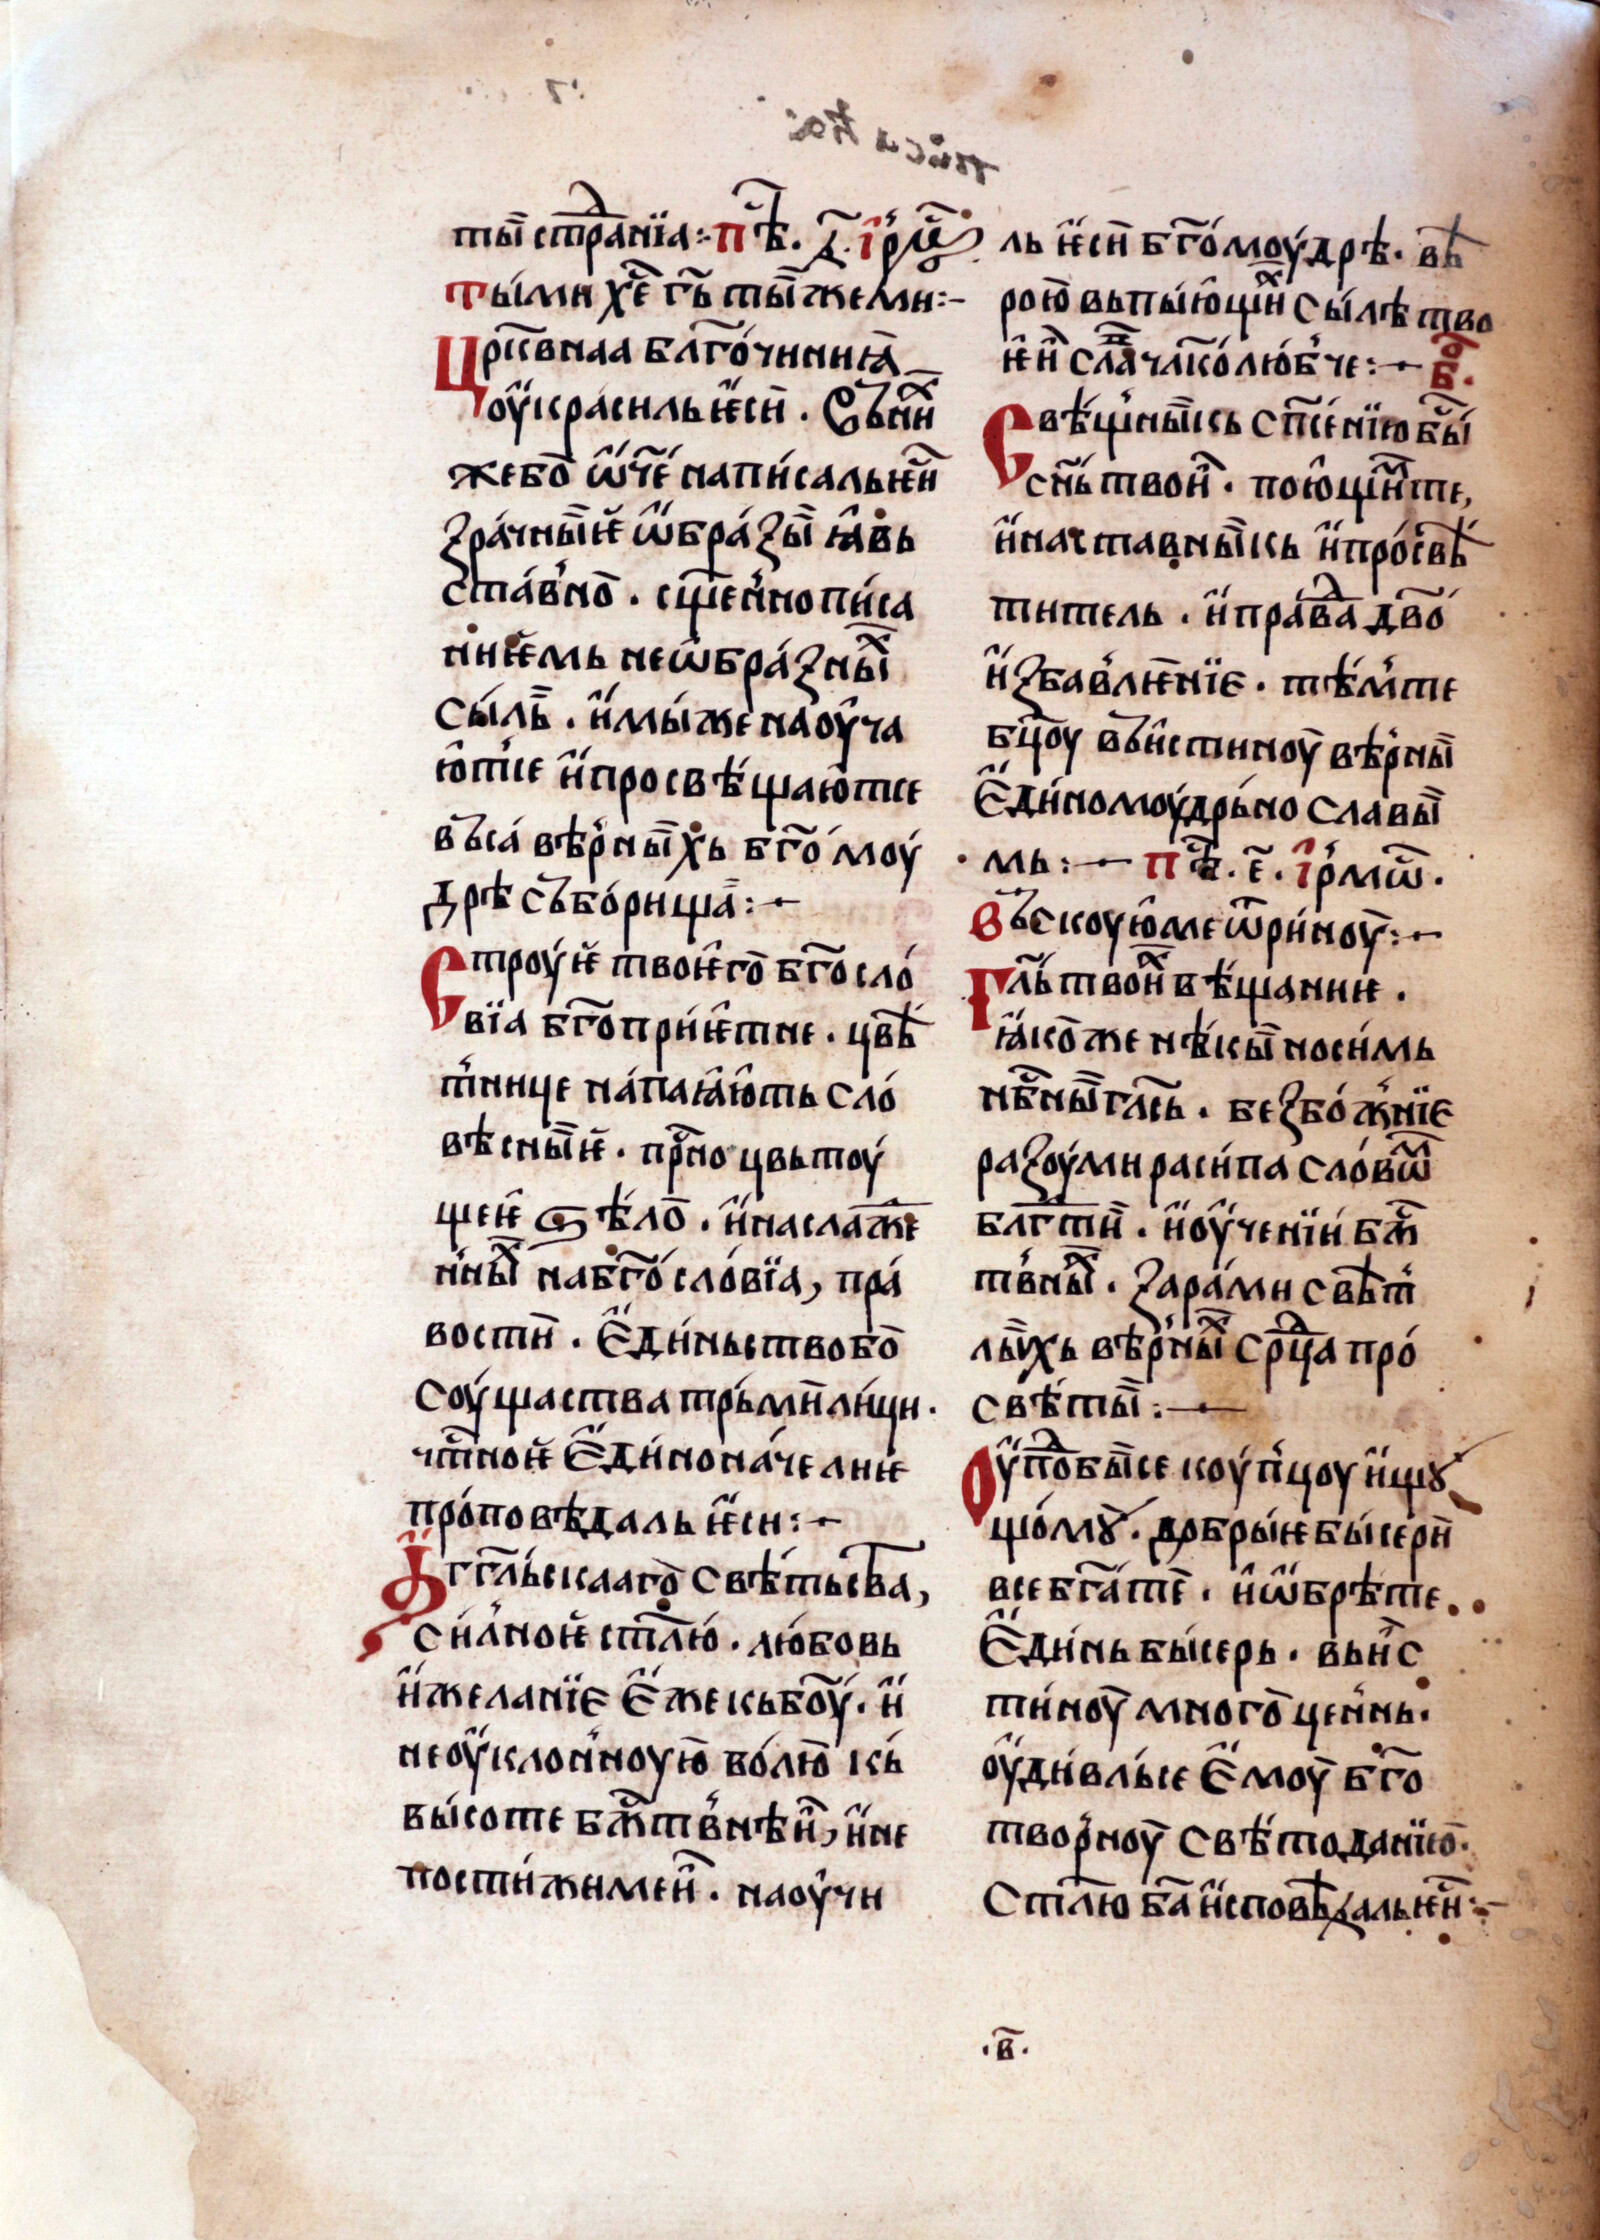 ты̏ стра́нїа:· пѣ҇. д҃. і҆рмⷭ҇
ты́ми хе҃ гь҃ ты̏ жеми:–
Цр҃квнаа блг҃о́чиниꙗ
ѹ҆краси́ль ѥ҆си̏. Съниⷯ
жебо ѿч҃е напи́саль ѥ҆сиⷭ
зра́чны̏ѥ ѡ҆бра́зы̏ ꙗ҆вь
ста́в҆но. сщ҃ен҆нопи́са
ниѥмь неѡ҆бра́зныⷯ
сы́ль. и҆мы́же наѹ҆ча
ю҆т҆се и҆просвѣ́щаю҆тсе
въса́ вѣр҆ны̏хь бг҃о́моу́
дрѣ събо́рища:–
Строу́ѥ твоѥ҆го бг҃осло́
вїа бг҃опри́ѥтне. цвѣⷮ
т҆нице на́паꙗ҆ю҆ть сло́
вѣсны̏ѥ. прⷭ҇но цвьтоу́
щеѥ ѕѣ́ло. и҆наслаже
н҆ныⷯ набг҃о́сло́вїа, пра́
вости̏. Е҆ди́ньство бо
соу́щаства трьми̏ ли́ци.
чт҃ноѥ е҆ди́нона́челниѥ
про́повѣдаль ѥ҆си:–
А҆гг҃льскааго свѣ́тьства,
сил҆ноѥ ст҃лю́. лю́бовь
и҆желанїе е҆же кьбо҃у́. и҆
неѹ҆клон҆ноую во́лю кь́
вы́соте бжⷭ҇тв҆нѣи̏, и҆не
пости́жимеи̏. наѹ҆чи
ль ѥ҆си̏ бг҃о́моу́дрѣ. вѣ
рою вьпы́ю҆щиⷯ сы́лѣ тво
ѥ҆и̏ сла́ чл҃ко́лю́б҆че:– бⷪ҇.
Свѣ́щ҆ны̏кь сп҃се́нїю бы̏ⷭ
сн҃ь твои̏. пою҆щиⷨте,
и҆наставны̏кь и҆про́свѣ
титель. и҆пра́вда дв҃о́
и҆збав҆лѥ̏нїе. тѣ́м҆те
бц҃оу въи҆стиноу̏ вѣр҆ны̏
е҆ди́номоу́дрьно славы̏
мь:– пѣⷭ҇. е҃. і҆р҆мѡⷭ҇.
Въскоую҆ме ѿри́ноу̏:–
Гл҃ь твоиⷯ вѣ́щаниѥ.
ꙗ҆коже нѣ́кы̏ носи́мь
нбⷭ҇ны̏ глась. безбо́ж҆нїе
разоу́ми раси́па сло́вѡⷨ
блг҃ти̏. и҆ѹ҆че́нїи бжⷭ҇
тв҆ныⷯ. зара́ми свѣт҆
лы̏хь вѣр҆ныⷯ ср҃ца про́
свѣ́ты̏:–
Ѹ҆подобы̏се коу́п҆цоу и҆щꙋ
що́мꙋ. добры́ѥ бы́сери̏
всебг҃а́те. и҆ѡ҆брѣте.
е҆ди́нь бы́серь. вьи҆с
ти́ноу̏ много цен҆нь.
ѹ҆ди́вль́се е҆моу̏ бг҃о
твор҆ноу̏ свѣ́тода́нїю.
Ст҃лю ба҃ и҆сповѣдаль ѥ҆си:–
·в҃·